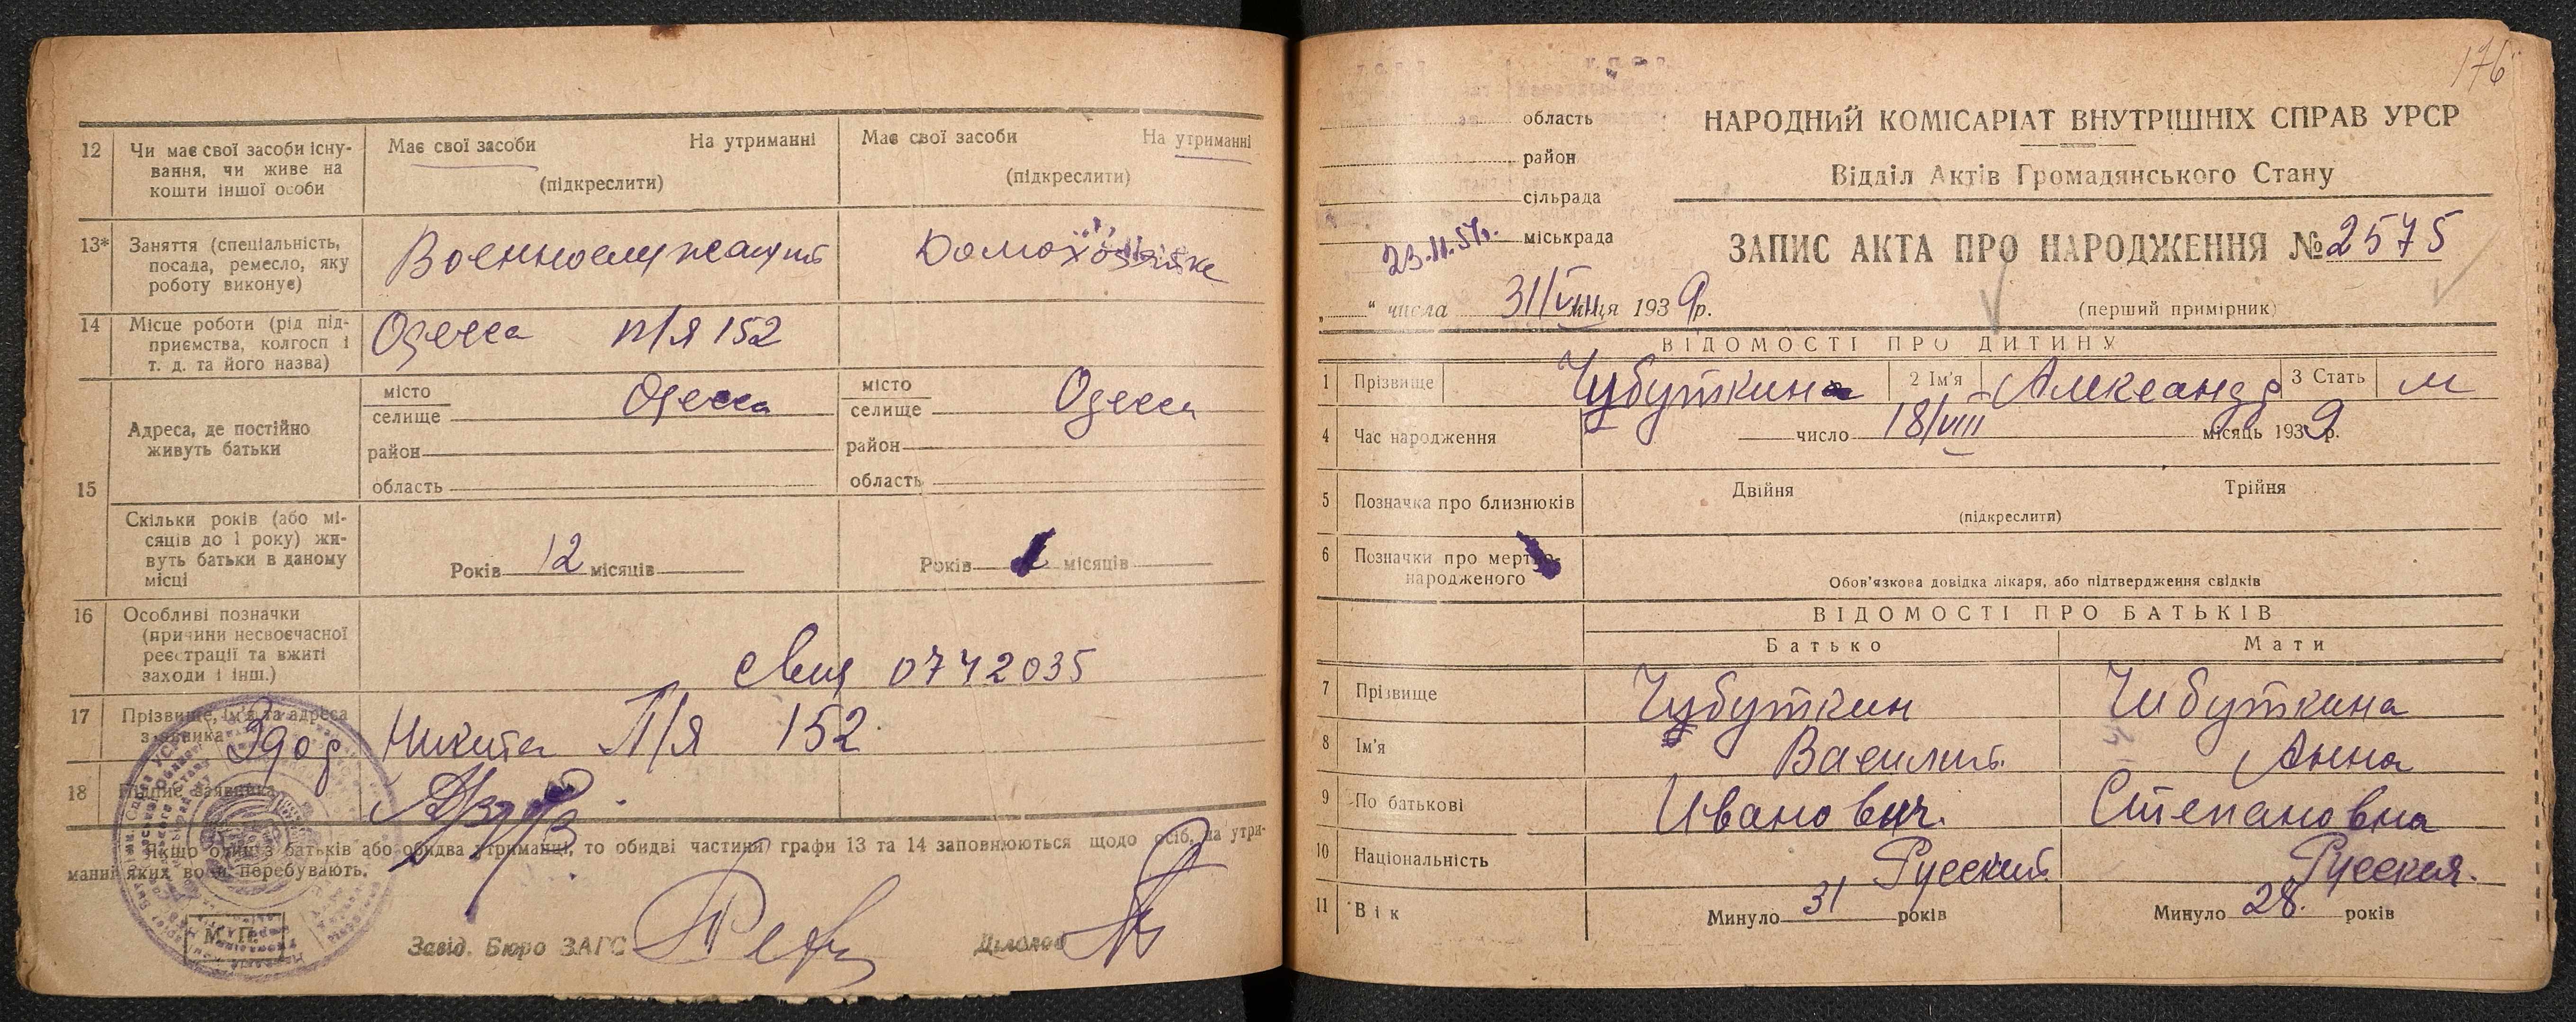 12 Чи має свої засоби існу-
вання, чи живе на
кошти іншої особи
Має свої засоби На утриманні
(підкреслити)
Має свої засоби На утриманні
(підкреслити)
13* Заняття (спеціальність,
посада, ремесло, яку
роботу виконує)
Военнослужащий
Домохозяйке
14 Місце роботи (рід під-
приємства, колгосп і
т. д. та його назва)
Одесса п/я 152
15 Адреса, де постійно
живуть батьки
місто
селище
Одесса
район
область
місто
селище
Одесса
район
область
Скільки років (або мі-
сяців до 1 року) жи-
вуть батьки в даному
місці
Років 12 місяців
Років місяців
16 Особливі позначки
(причини несвоєчасної
реєстрації та вжиті
заходи і інш.)
0742035
17 Прізвище, ім'я та адреса
заявника
Никита П/я 152
18 Підпис заявника
Якщо один з батьків або обидва утриманці, то обидві частини графи 13 та 14 заповнюються щодо осіб, на утри-
манні яких вони перебувають.
М. П.
Завід. Бюро ЗАГС
Діловод
176
область
район
сільрада
міськрада
НАРОДНИЙ КОМІСАРІАТ ВНУТРІШНІХ СПРАВ УРСР
Відділ Актів Громадянського Стану
ЗАПИС АКТА ПРО НАРОДЖЕННЯ № 2575
(перший примірник)
„ “ числа 31/VIII місяця 1939р.
ВІДОМОСТІ ПРО ДИТИНУ
1 Прізвище Чубуткин 2 Ім'я Александр 3 Стать м
4 Час народження число 18/VIII місяць 1939 р.
5 Позначка про близнюків Двійня Трійня
(підкреслити)
6 Позначки про мертво-
народженого
Обов'язкова довідка лікаря, або підтвердження свідків
ВІДОМОСТІ ПРО БАТЬКІВ
Батько Мати
7 Прізвище Чубуткин Чибуткина
8 Ім'я Василий Анна
9 По батькові Иванович. Степановна
10 Національність Русский Русская.
11 Вік Минуло 31 років Минуло 28. років